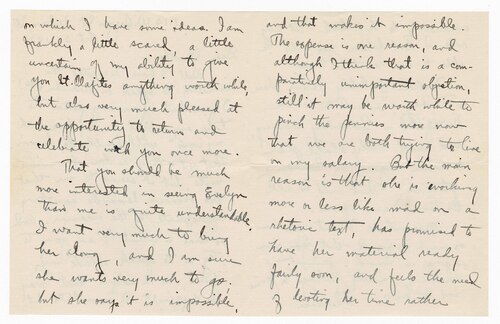 on which I have some ideas. I am
frankly a little scared, a little
uncertain of my ability to give
you St. Olafites anything worth while,
but also very much pleased at
the opportunity to return and
celebrate with you once more.
That you should be much
more interested in seeing Evelyn
than me is quite understandable.
I want very much to bring
her along, and I am sure
she wants very much to go.
but she says it is impossible,
and that makes it impossible.
The expense is one reason, and
although I think that is a com-
paratively unimportant objection,
still it may be worth while to
pinch the pennies more now
that we are both trying to live
on my salary. But the main
reason is that she is working
more or less like mad on a
rhetoric text, has promised to
have her material ready
fairly soon, and feels the need
of devoting her time rather